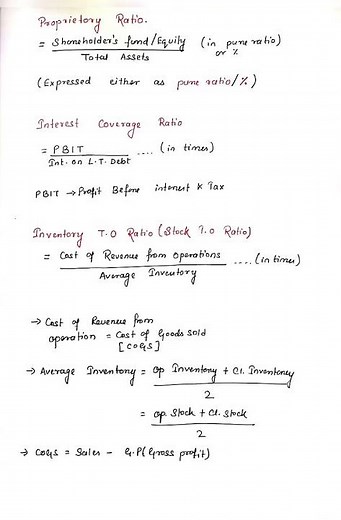 Proprietory Ratio.
= Shareholder's fund/Equity (in pure ratio)
Total Assets or %
(Expressed either as pure ratio/%)
Interest Coverage Ratio
= PBIT .... (in times)
Int. on L.T. Debt
PBIT → Profit Before interest & Tax
Inventory T.O Ratio (Stock T.O Ratio)
= Cost of Revenue from Operations .... (in times)
Average Inventory
→ Cost of Revenue from
operation = Cost of Goods Sold
[COGS]
→ Average Inventory = op Inventory + Cl. Inventory
2
= op. Stock + Cl. Stock
2
→ COGS = Sales - G.P (Gross profit)